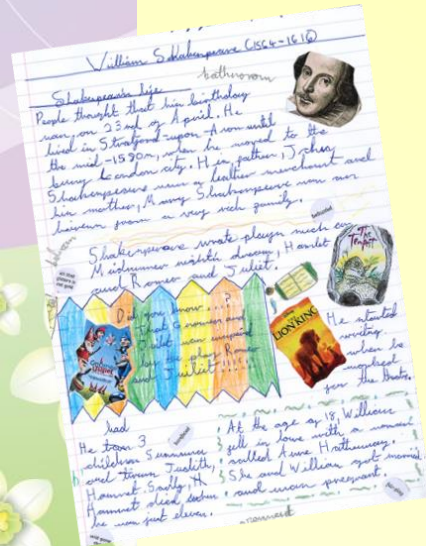 William Shakespeare (1564-1616)
bathroom
Shakespeare's life
People thought that his birthday
was, on 23rd of April. He
lived in Stratford-upon-Avon until
the mid-1580s, when he moved to the
busy London city. His, father, John
Shakespeare was a leather merchant and
his mother, Mary Shakespeare was an
heiress from a very rich family.
Shakespeare wrote plays such as
Midsummer nights dream, Hamlet
and Romeo and Juliet.
The
Tempest
Did you know...?
That Gnomeo and
Juliet was inspired
by the play Romeo
and Juliet.....
THE
LION KING
He started
writing
when he
worked
for the
had
He 3
children Sussanna
and twins Judith,
Hamnet. Sadly, H
Hamnet died when
he was just eleven.
At the age of 18, William
fell in love with a woman
called Anne Hathaway.
She and William got married
and was pregnant.